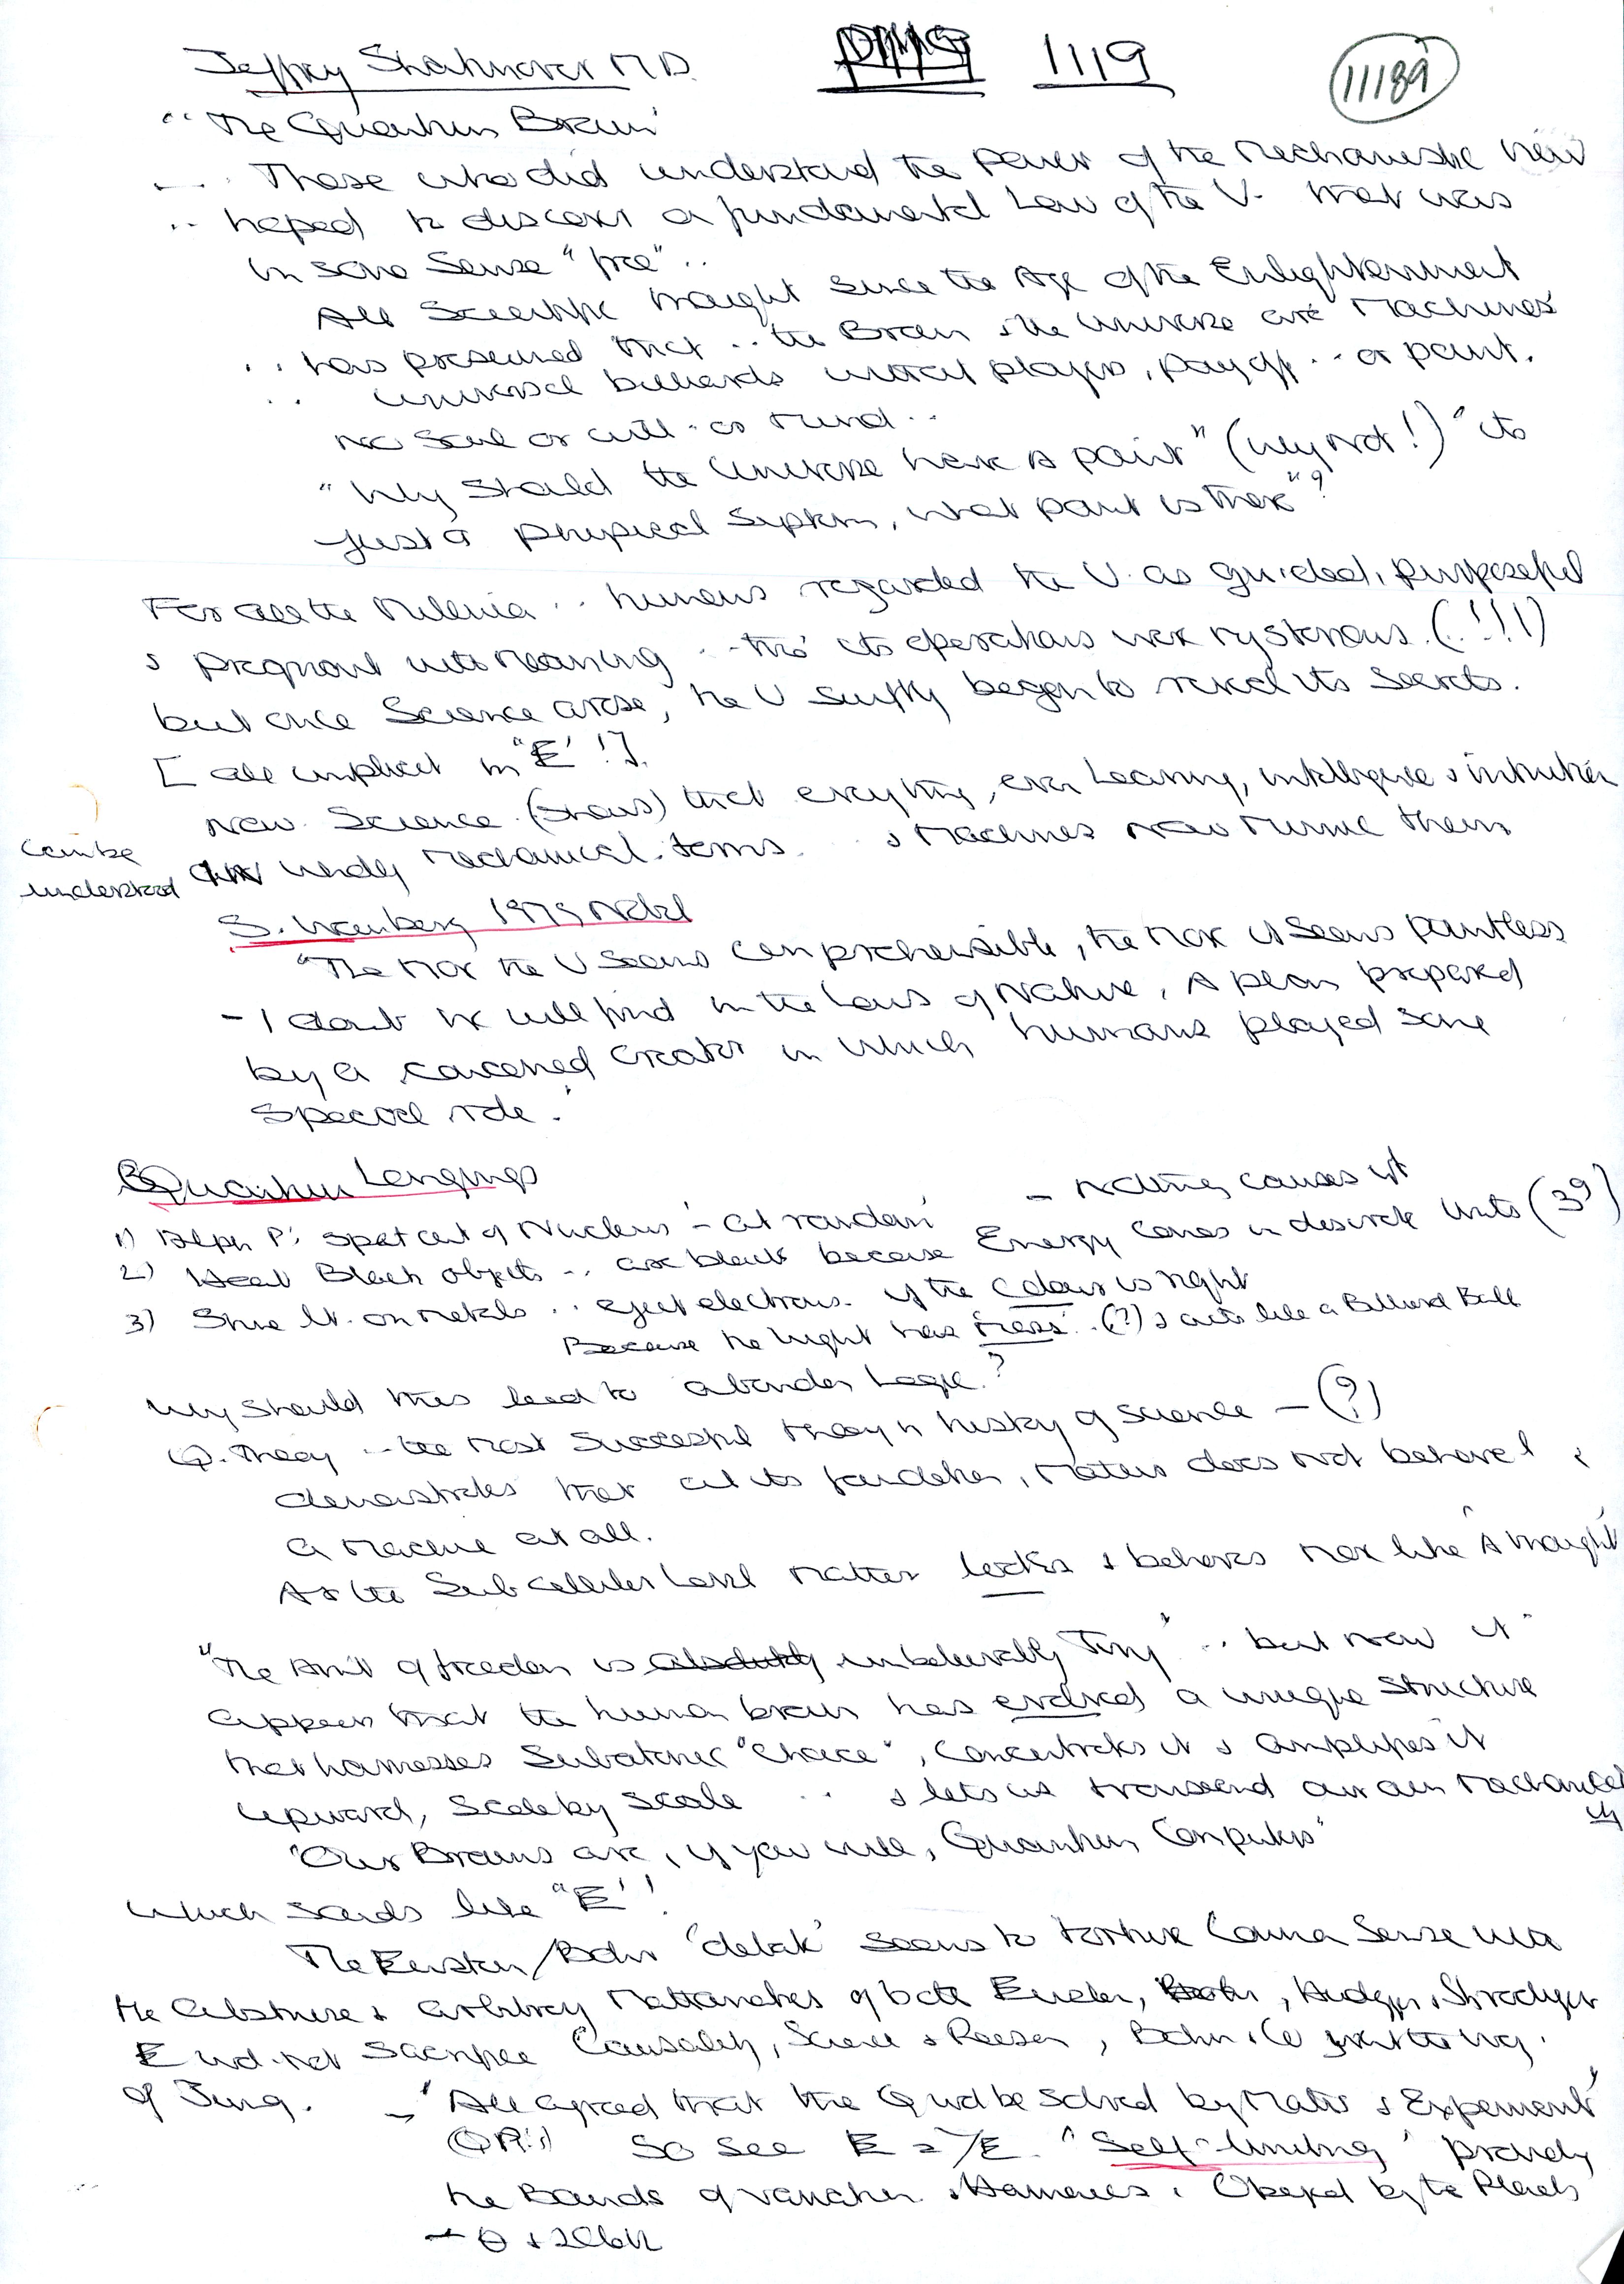 Jeffrey M.D. 1119 11189
"The Quantum Brain"
Those who did understand the power of the Mechanistic view
.. hoped to discover a fundamental Law of the U. that was
in some Sense "free" ..
All Scientific thought since the Age of the Enlightenment
.. has presumed that .. the Brain & the Universe are 'Machines'
.. Universal billiards without players, pay off .. or point.
No Soul or will . or Mind ..
"Why should the Universe have A point" (why not!) "its
just a physical System, what point is there"?
For all the Millenia .. humans regarded the U. as guided, purposeful
& pregnant with meaning .. tho' its operations were mysterious. (..!!!)
but once Science arose, the U swiftly began to reveal its Secrets.
[all implicit in "E" !].
New Science (shows) that everything, even Learning, intelligence & intuition
can be
understood in wholly Mechanical terms. & Machines now mimic them
S. Weinberg 1979 Nobel
"The Mor the U Seems comprehensible, the Mor it Seems pointless
- I doubt we will find in the Laws of Nature, A plan prepared
by a concerned Creator in which humans played some
Special role."
Quantum Longings
- Nothing causes it
1) Alpha P's spat out of Nucleus - at random
2) Heat Black objects .. are black because Energy comes in discrete Units (3°)
3) Shine lt. on Metals .. eject electrons. if the colour is right
Because the light has 'mass' .. (?) & acts like a Billiard Ball
Why should this lead to abandon Logic?
Q. Theory .. the most Successful theory in history of science - (?)
demonstrates that at its foundation, Matter does not behave l
a machine at all.
At the Subcellular Level Matter looks & behaves mor like 'A thought'
"The Am't of freedom is absolutely unbelievably Tiny" .. but now it
appears that the human brain has evolved a unique Structure
that harnesses Subatomic "Choice", Concentrates it & amplifies it
upward, Scale by Scale .. & lets us transcend our own Mechanical
"Our Brains are, if you will, Quantum Computers"
which sounds like "E"!
The Einstein/Bohr 'debate' seems to torture Common Sense via
the abstruse & arbitrary Mathematics of both
E wd. not Sacrifice Causality, Science & Reason, Bohr & Co
of Jung. - 'All agreed that the Q wd be Solved by Maths & Experiment'
So see "Self-limiting"
the Bounds of variation & Harmonics,